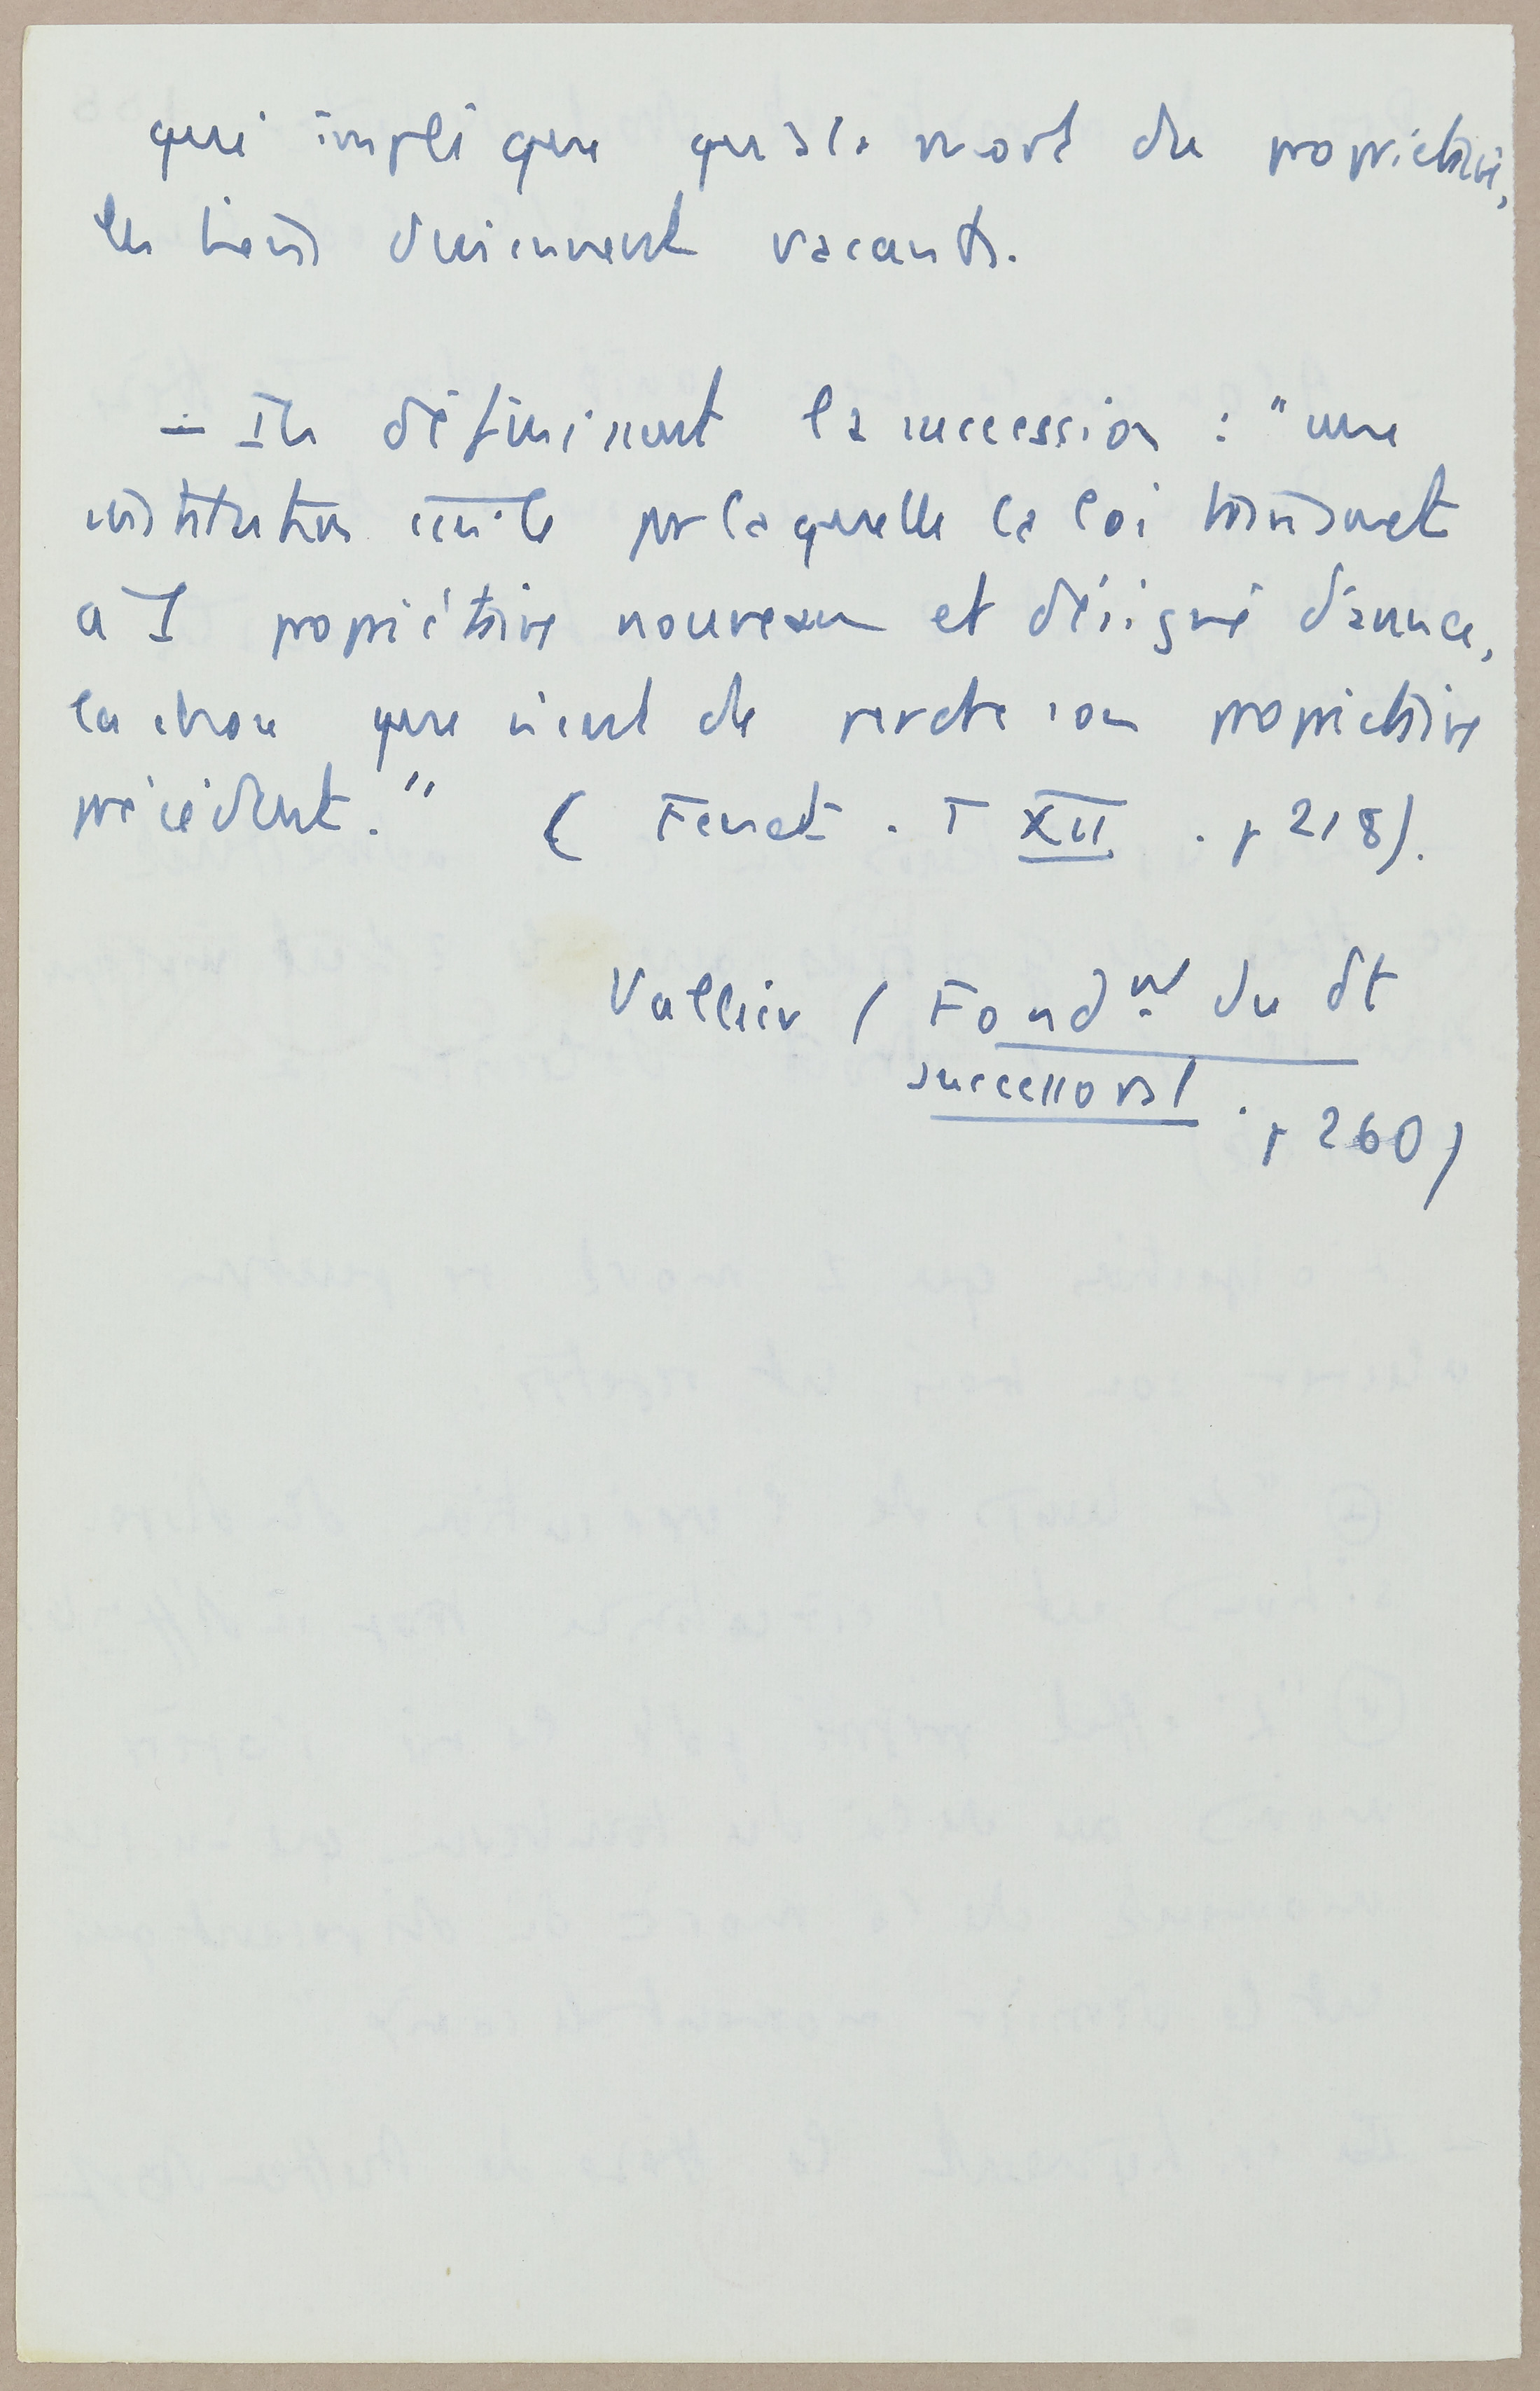 qui implique qu'à la mort du propriétaire,
les biens deviennent vacants.
– Ils définissent la succession : "une
institution civile par laquelle la loi transmet
a I propriétaire nouveau et désigné d'avance,
la chose que vient de perdre son propriétaire
précédent." ( Fenet . T XII . p 218).
Vallier ( Fond du dt
successoral . p 260)